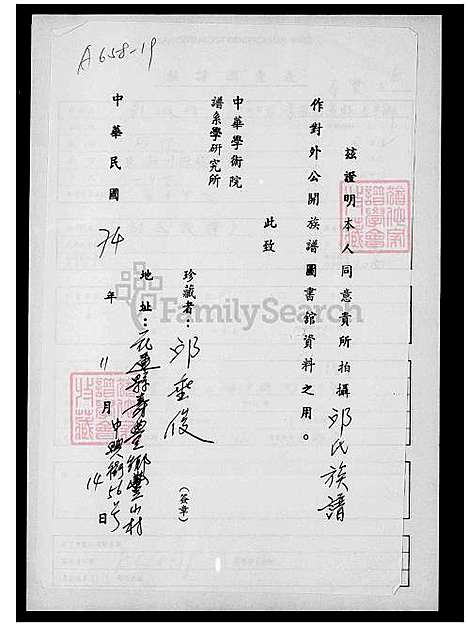 A658-19
茲證明本人同意貴所拍攝邱氏族譜
作對外公開族譜圖書館資料之用。
此致
中華學術院
譜系學研究所
珍藏者：邱垂俊（簽章）
地址：花蓮縣壽豐鄉豐山村
中興街56号
中華民國74年11月14日
FamilySearch
譜學會
特藏